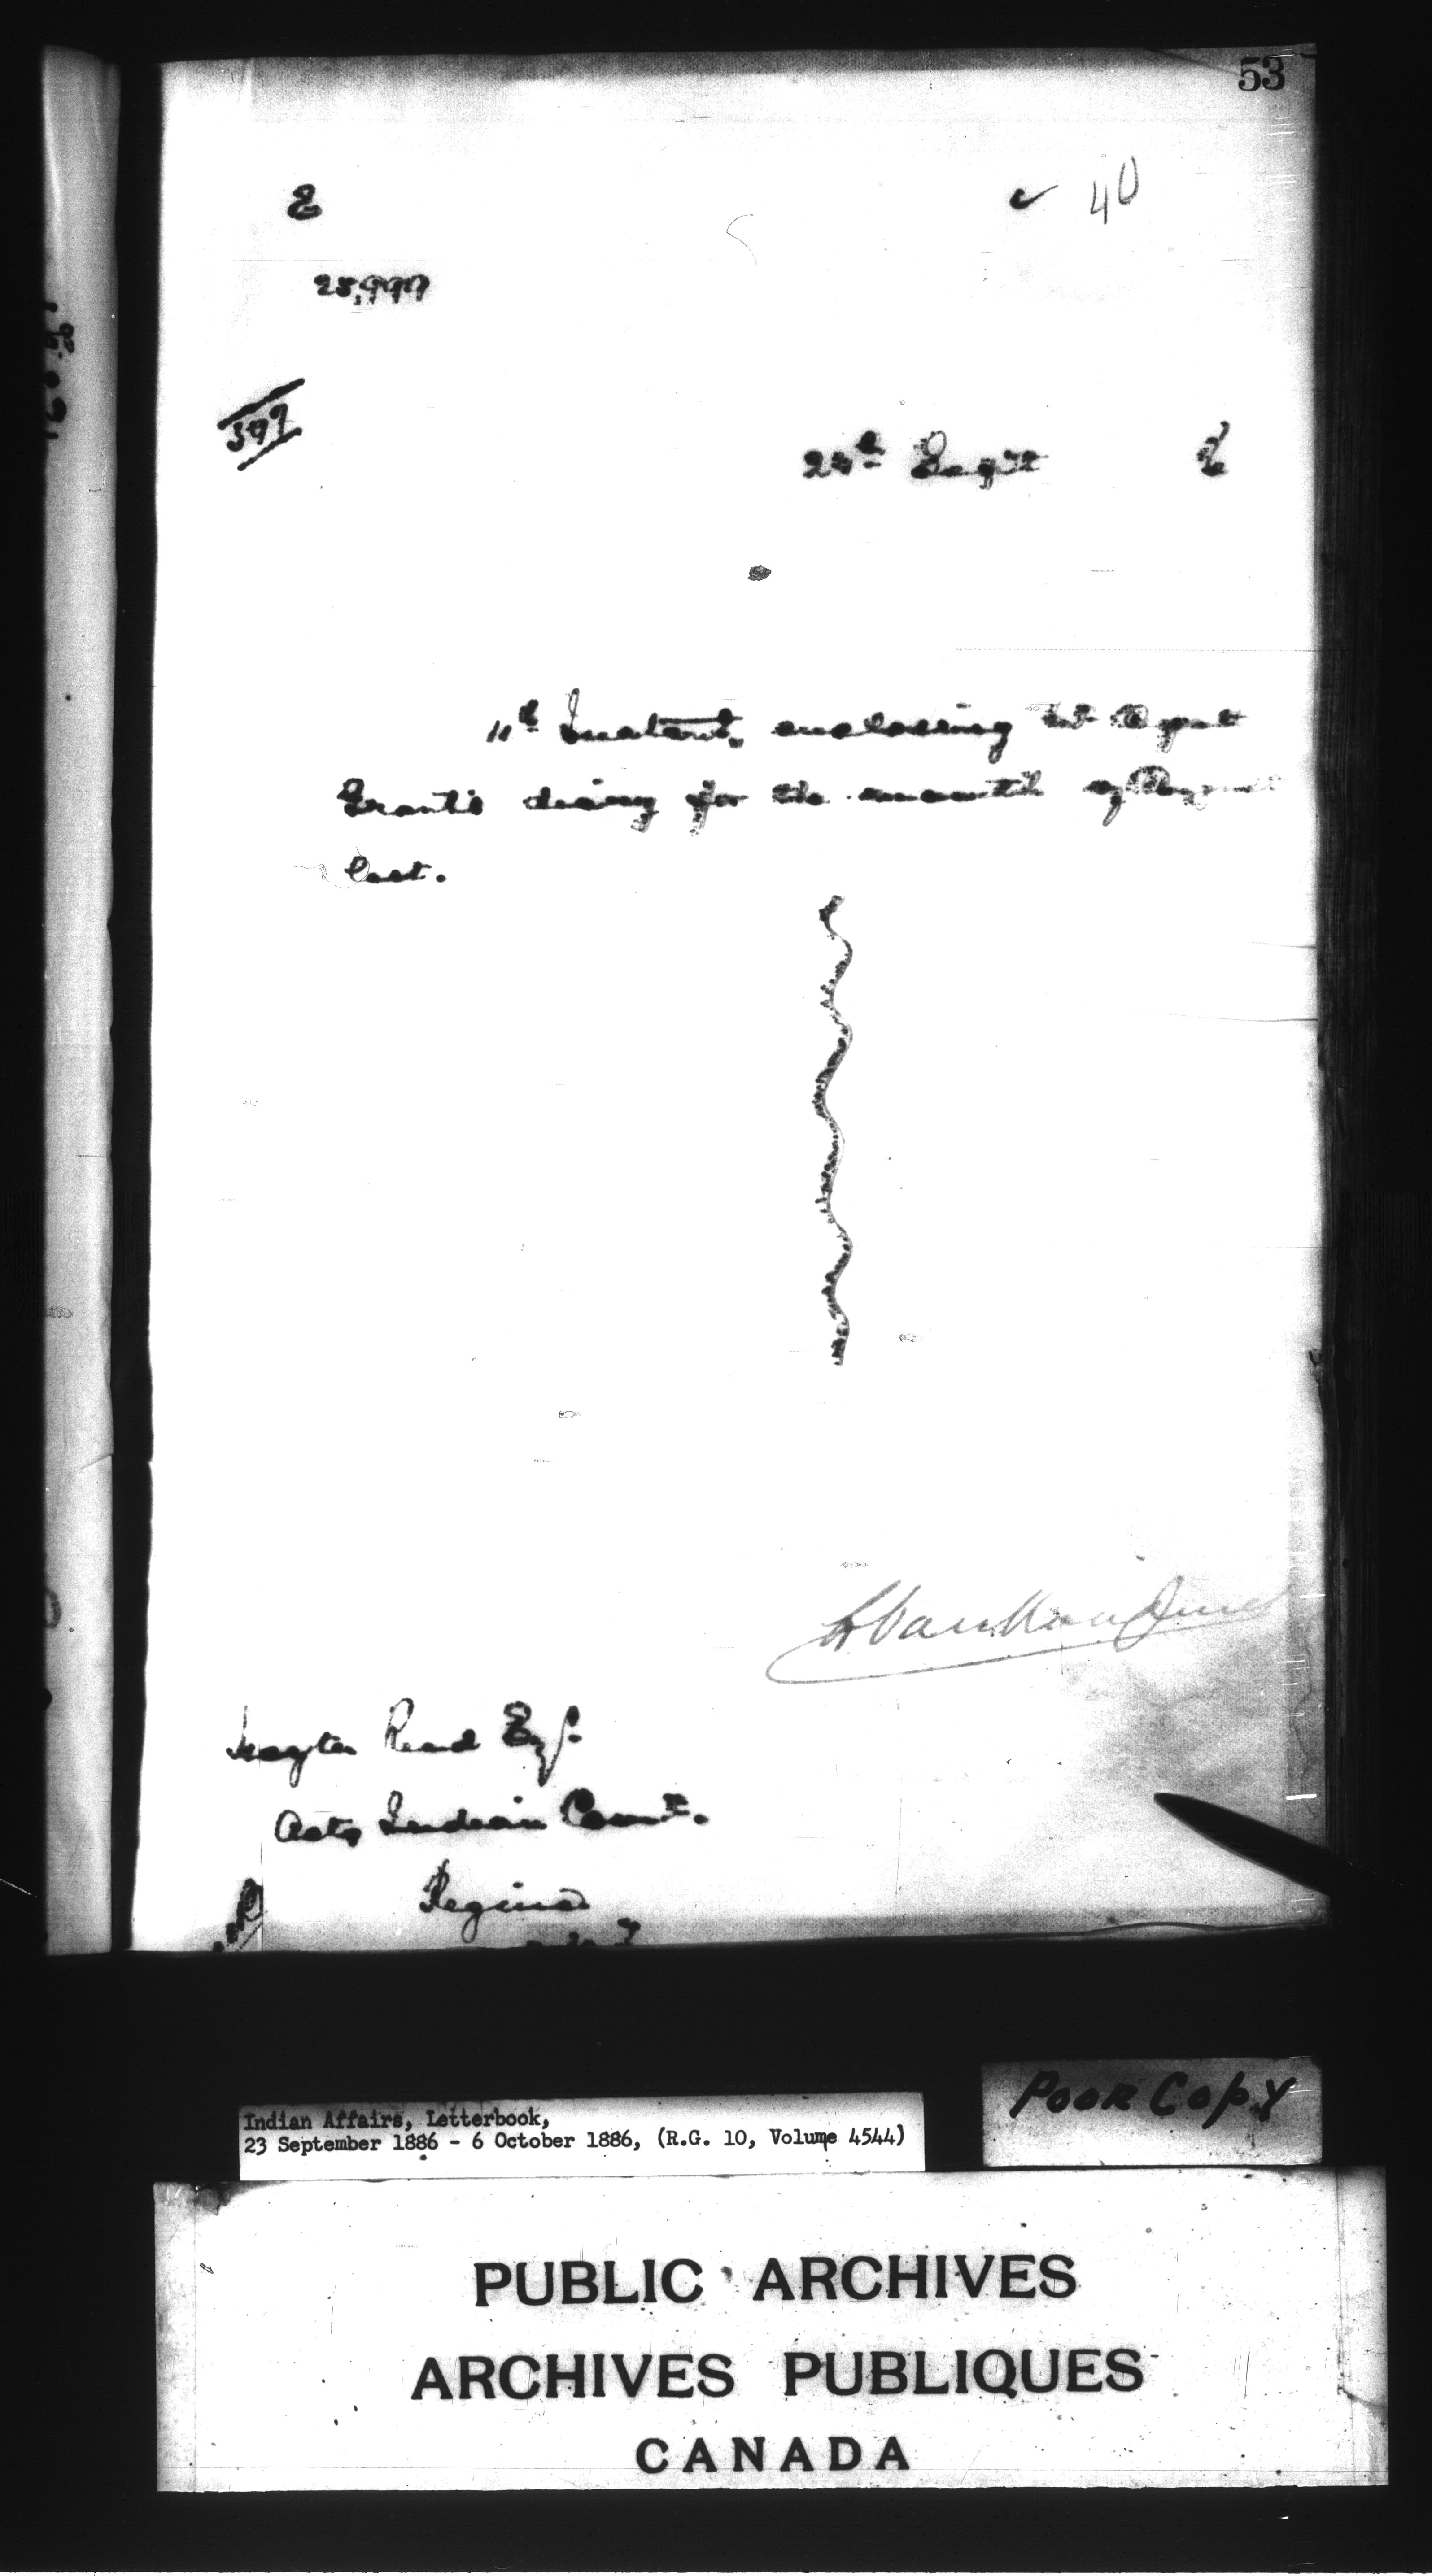 53
E
✓ 40
28,997
24th Sept 6
11th Instant, enclosing Agent
Grant's diary for the month of August
last.
L. Vankoughnet
Hayter Reed Esq.
Actg Indian Commr.
Regina
Indian Affairs, Letterbook,
23 September 1886 - 6 October 1886, (R.G. 10, Volume 4544)
POOR COPY
PUBLIC ARCHIVES
ARCHIVES PUBLIQUES
CANADA